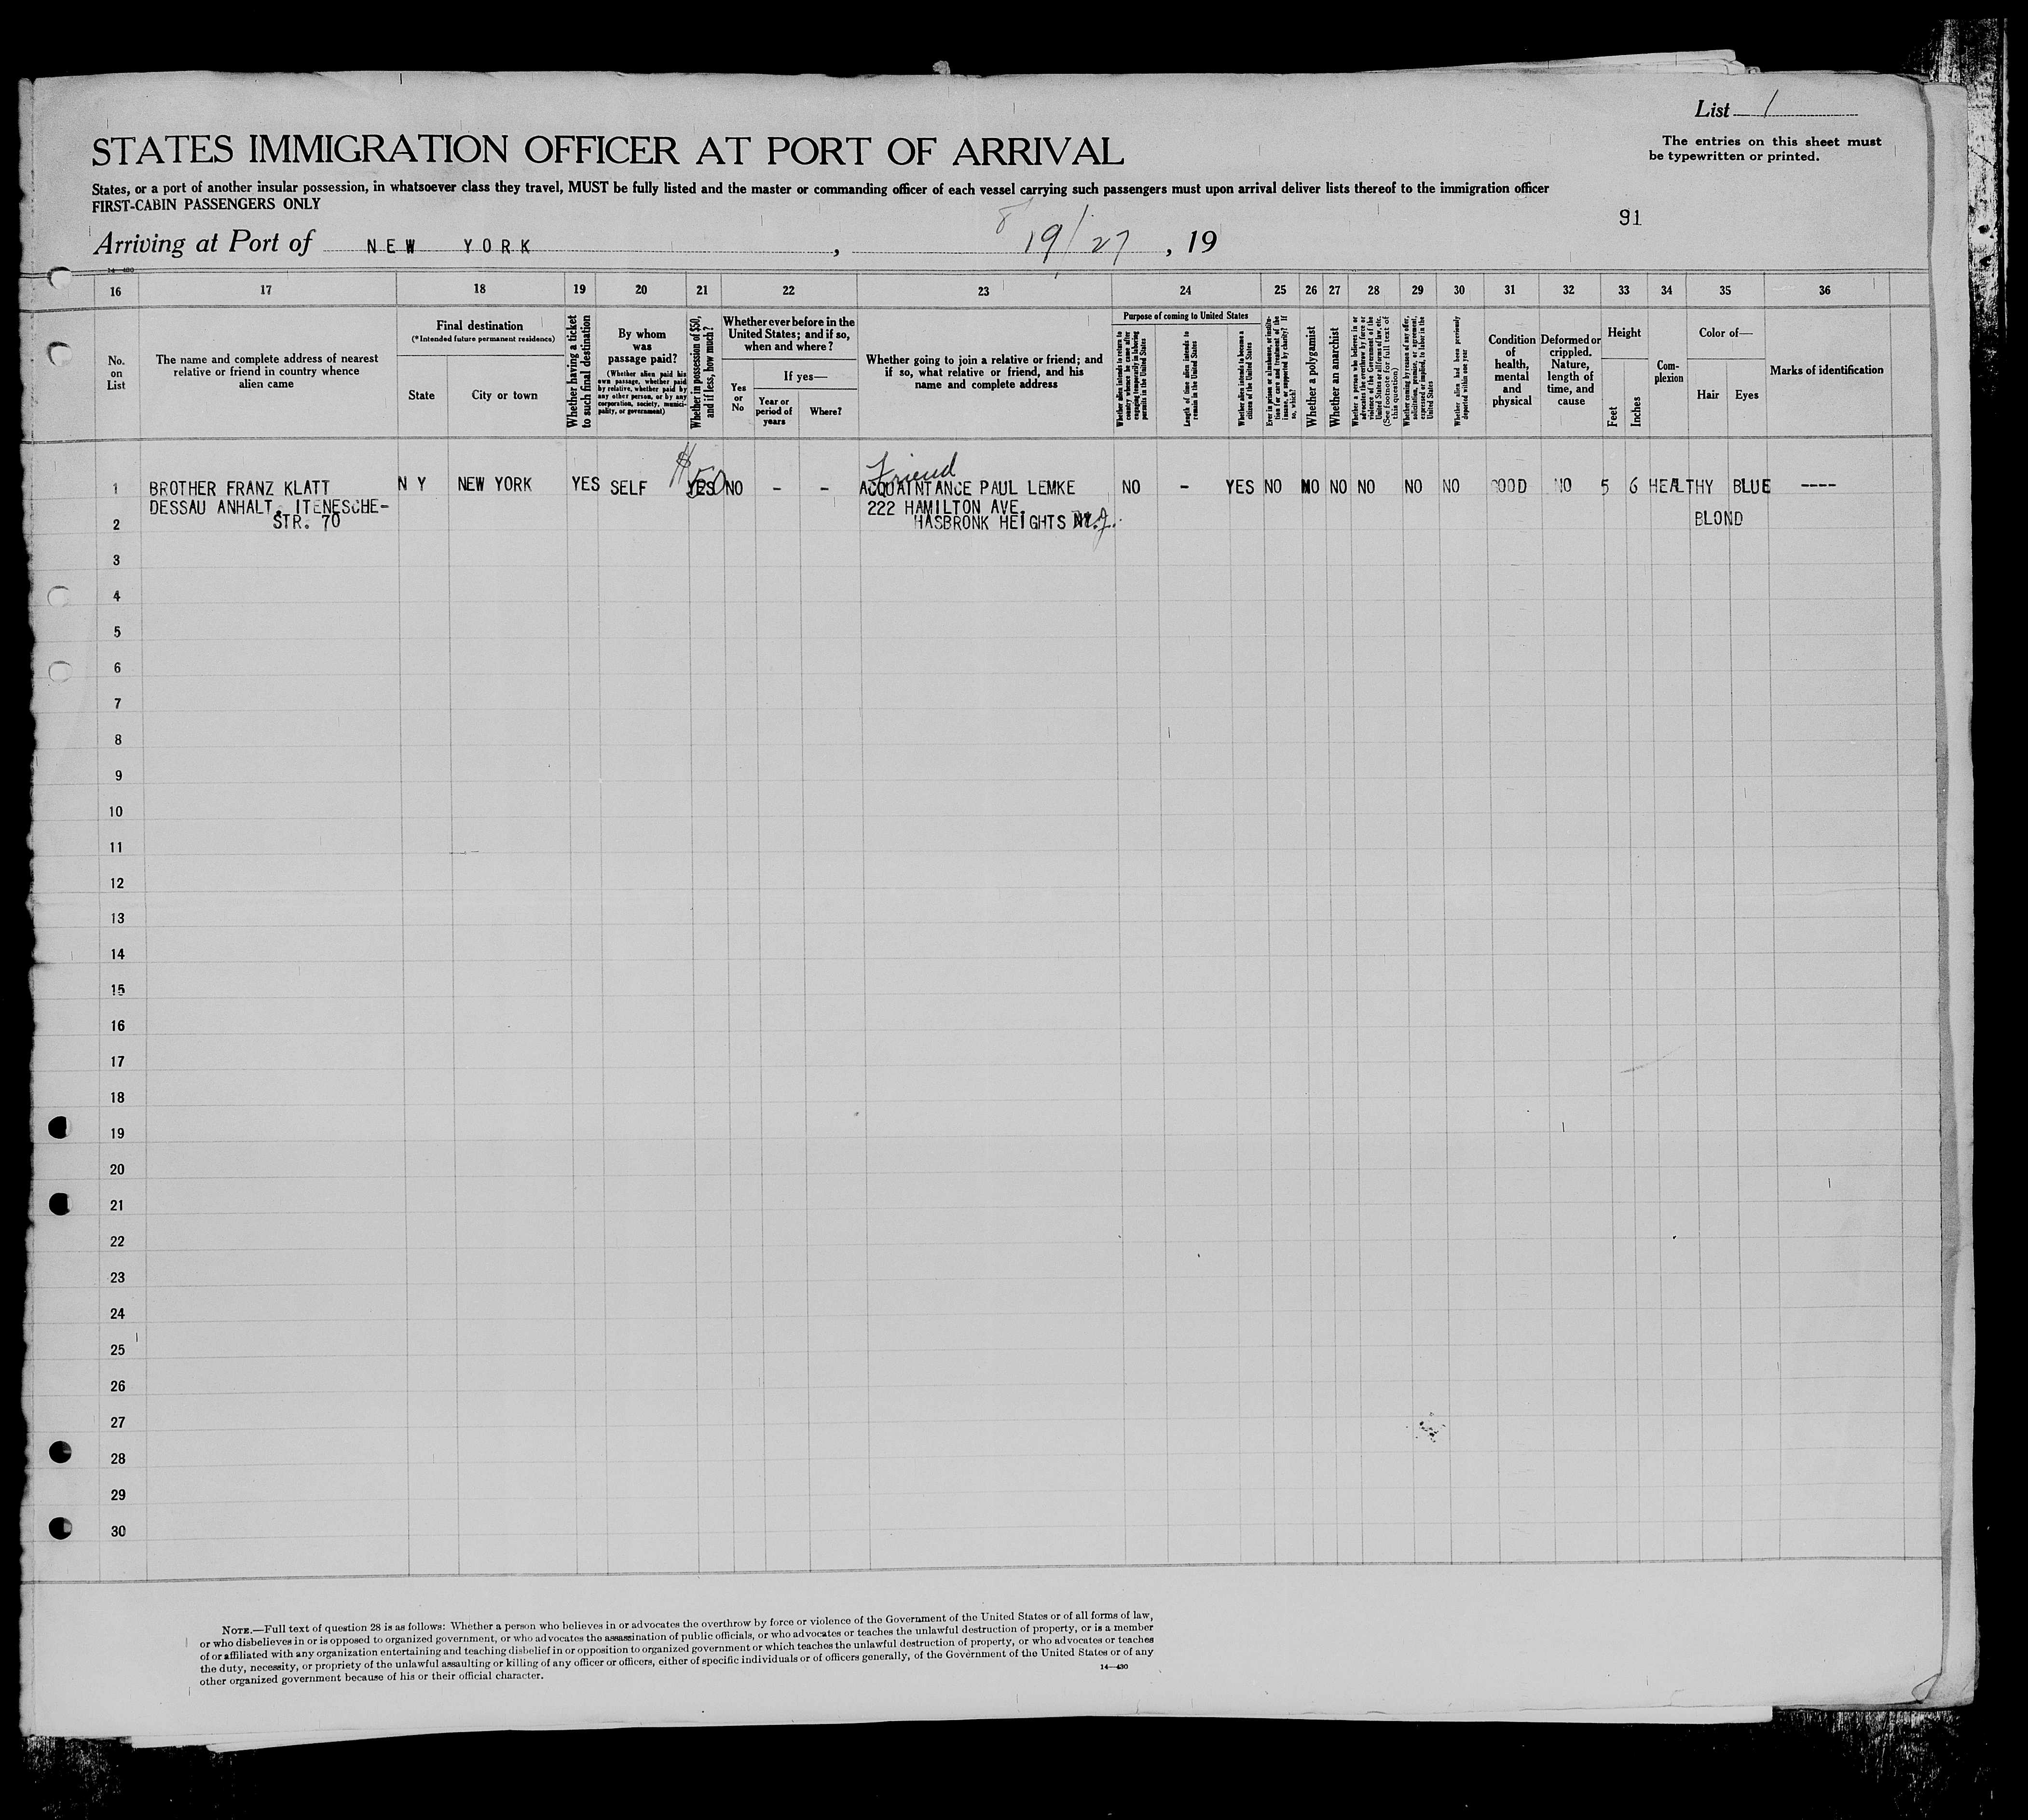 List 1
The entries on this sheet must
be typewritten or printed.
STATES IMMIGRATION OFFICER AT PORT OF ARRIVAL
States, or a port of another insular possession, in whatsoever class they travel, MUST be fully listed and the master or commanding officer of each vessel carrying such passengers must upon arrival deliver lists thereof to the immigration officer
FIRST-CABIN PASSENGERS ONLY
91
Arriving at Port of NEW YORK, 8 19/27, 19
14—430
16 17 18 19 20 21 22 23 24 25 26 27 28 29 30 31 32 33 34 35 36
No.
on
List
The name and complete address of nearest
relative or friend in country whence
alien came
Final destination
(*Intended future permanent residence)
State
City or town
Whether having a ticket
to such final destination
By whom
was
passage paid?
(Whether alien paid his
own passage, whether paid
by relative, whether paid by
any other person, or by any
corporation, society, munici-
pality, or government)
Whether in possession of $50,
and if less, how much?
Whether ever before in the
United States; and if so,
when and where?
Yes
or
No
If yes—
Year or
period of
years
Where?
Whether going to join a relative or friend; and
if so, what relative or friend, and his
name and complete address
Purpose of coming to United States
Whether alien intends to return to
country whence he came after
engaging temporarily in laboring
permits in the United States
Length of time alien intends to
remain in the United States
Whether alien intends to become a
citizen of the United States
Ever in prison or almshouse, or institu-
tion for care and treatment of the
insane, or supported by charity? If
so, which?
Whether a polygamist
Whether an anarchist
Whether a person who believes in or
advocates the overthrow by force or
violence of the Government of the
United States or all forms of law, etc.
(See footnote for full text of
this question)
Whether coming by reason of any offer,
solicitation, promise, or agreement,
expressed or implied, to labor in the
United States
Whether alien had been previously
deported within one year
Condition
of
health,
mental
and
physical
Deformed or
crippled.
Nature,
length of
time, and
cause
Height
Feet
Inches
Com-
plexion
Color of—
Hair
Eyes
Marks of identification
$50 Friend
1 BROTHER FRANZ KLATT N Y NEW YORK YES SELF YES NO - - ACQUAINTANCE PAUL LEMKE NO - YES NO NO NO NO NO NO GOOD NO 5 6 HEALTHY BLUE ----
DESSAU ANHALT, ITENESCHE- 222 HAMILTON AVE.
2 STR. 70 HASBRONK HEIGHTS N.J. BLOND
3
4
5
6
7
8
9
10
11
12
13
14
15
16
17
18
19
20
21
22
23
24
25
26
27
28
29
30
NOTE.—Full text of question 28 is as follows: Whether a person who believes in or advocates the overthrow by force or violence of the Government of the United States or of all forms of law,
or who disbelieves in or is opposed to organized government, or who advocates the assassination of public officials, or who advocates or teaches the unlawful destruction of property, or is a member
of or affiliated with any organization entertaining and teaching disbelief in or opposition to organized government or which teaches the unlawful destruction of property, or who advocates or teaches
the duty, necessity, or propriety of the unlawful assaulting or killing of any officer or officers, either of specific individuals or of officers generally, of the Government of the United States or of any
other organized government because of his or their official character.
14—430